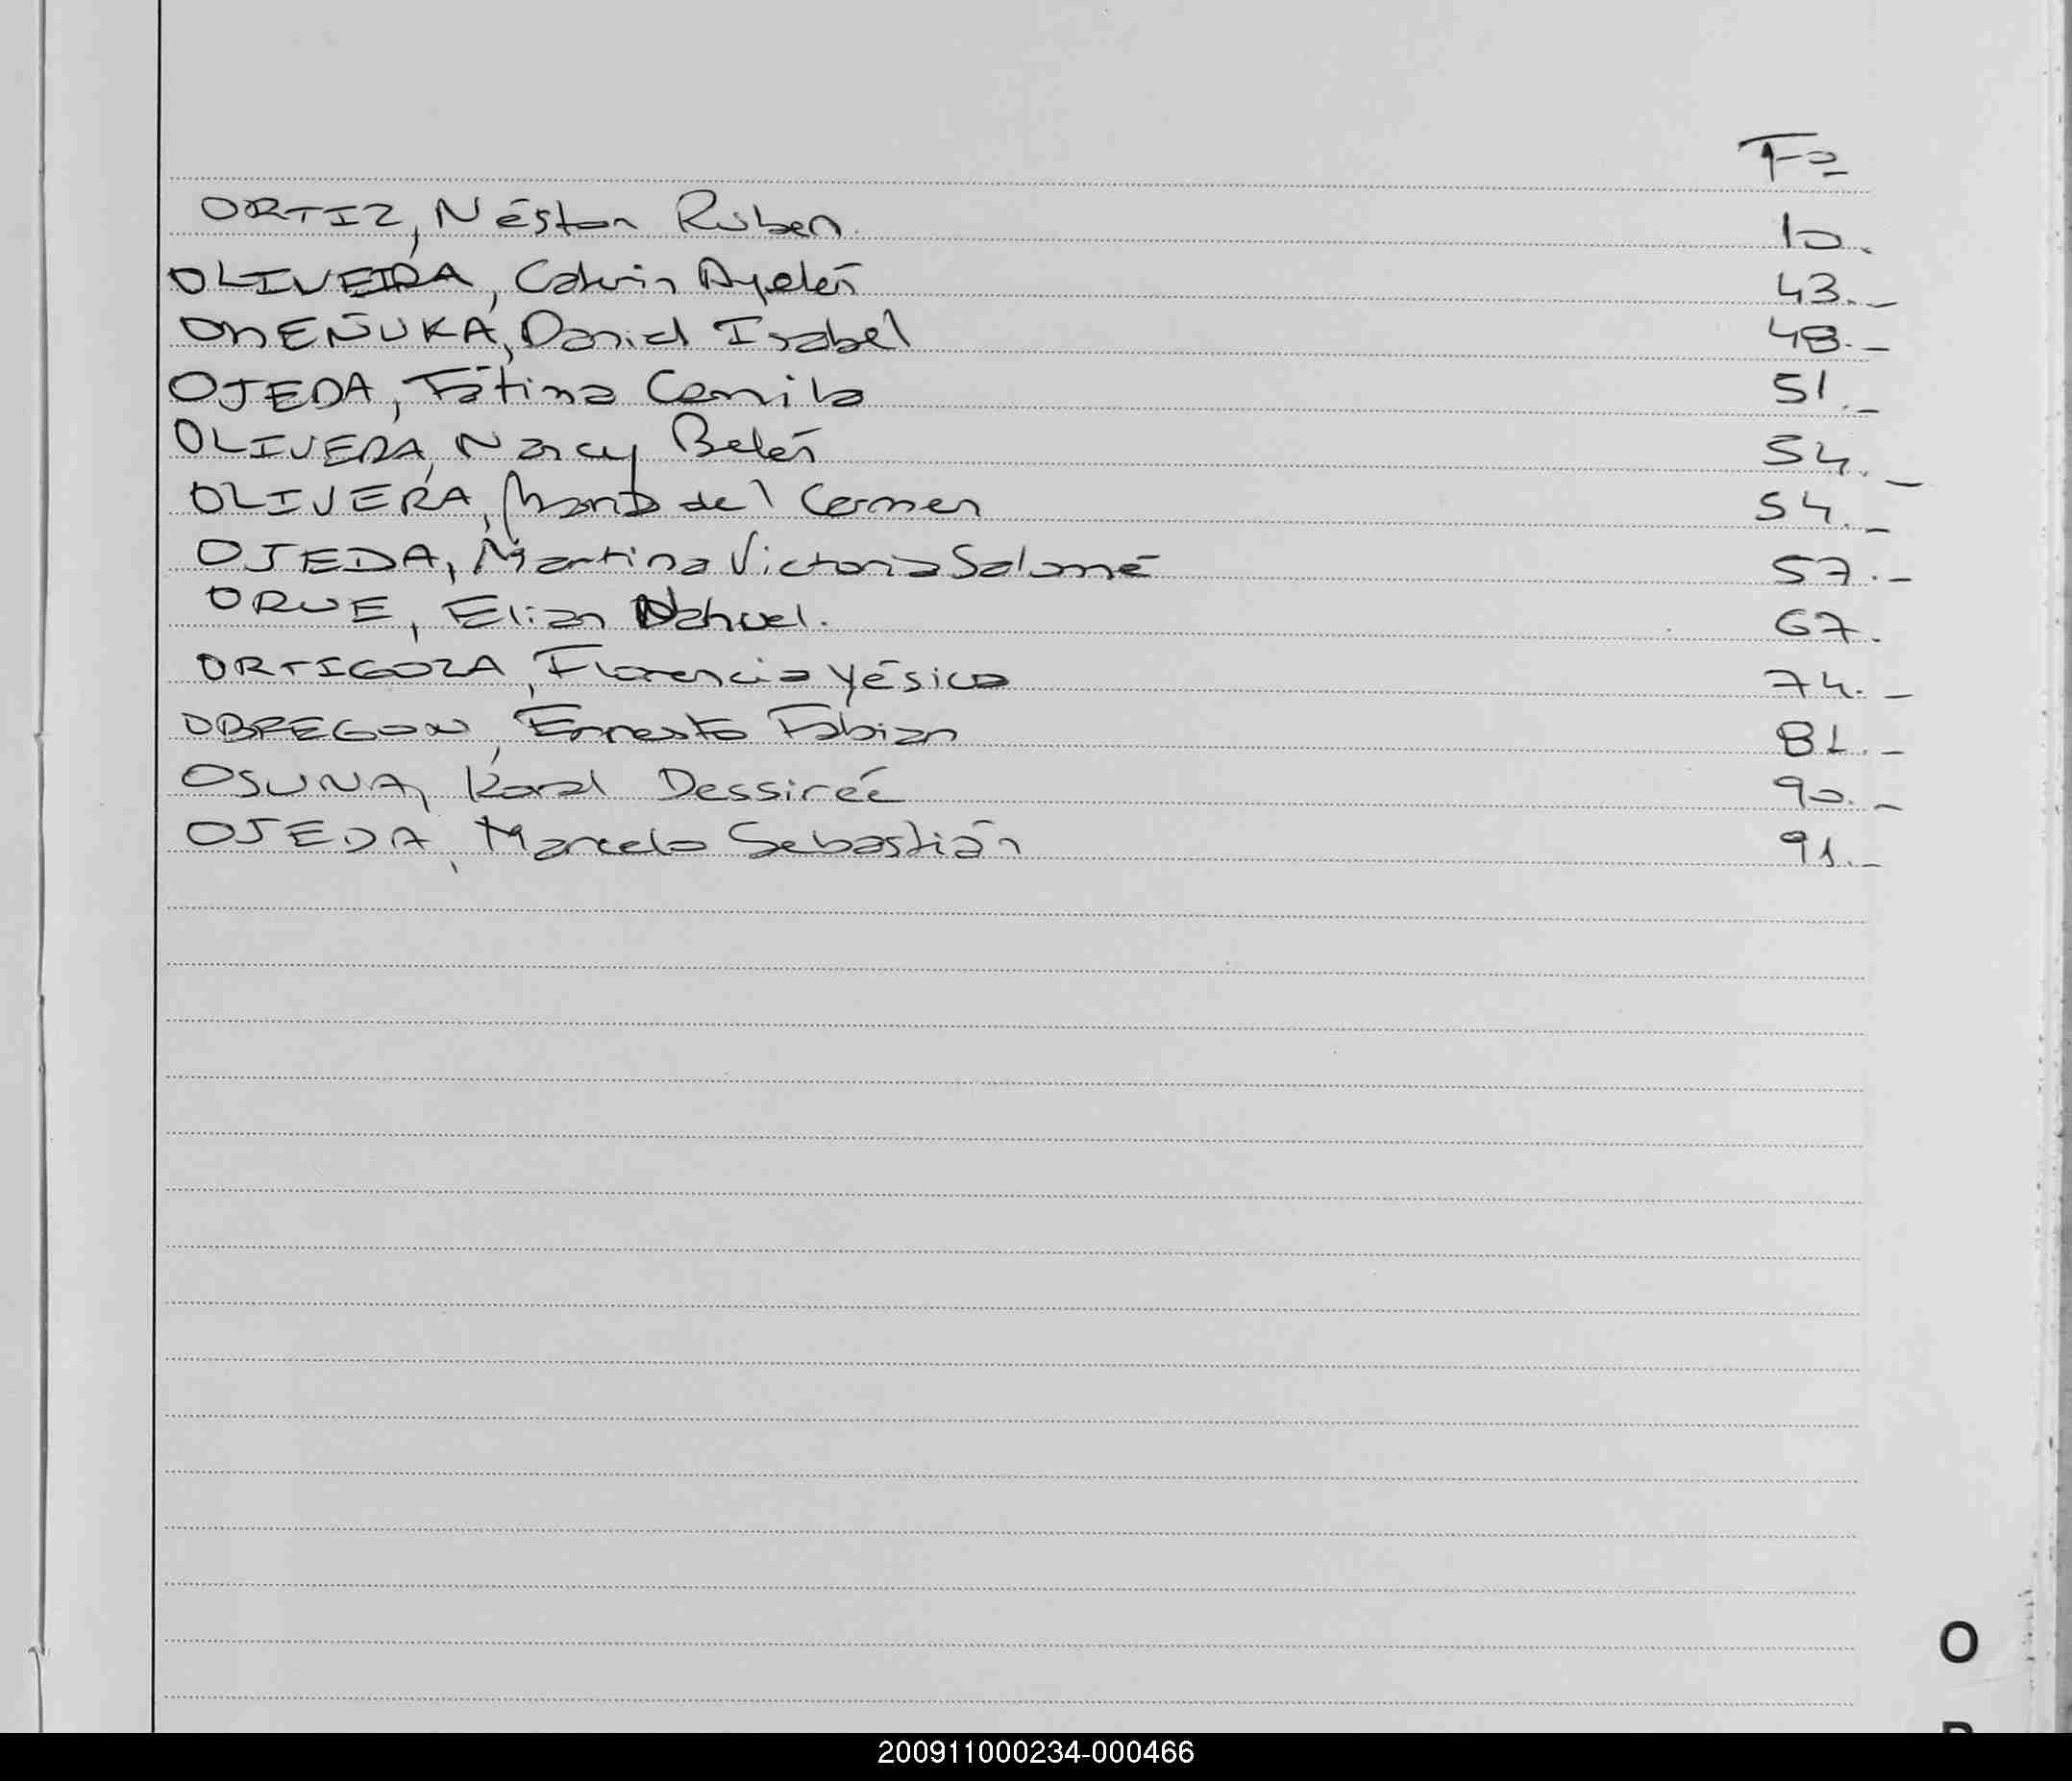 Fº
ORTIZ, Néstor Ruben. 10.
OLIVEIRA, Catrin Ayelén 43.-
OMEÑUKA, Daniel Isabel 48.-
OJEDA, Fátima Camila 51.-
OLIVERA, Nancy Belén 54.-
OLIVERA, María del Carmen 54.-
OJEDA, Martina Victoria Salomé 57.-
ORUE, Elian Nahuel. 67.
ORTIGOZA, Florencia Yésica 74.-
OBREGON, Ernesto Fabian 81.-
OSUNA, Karal Dessireé 90.-
OJEDA, Marcelo Sebastián 91.-
O
200911000234-000466